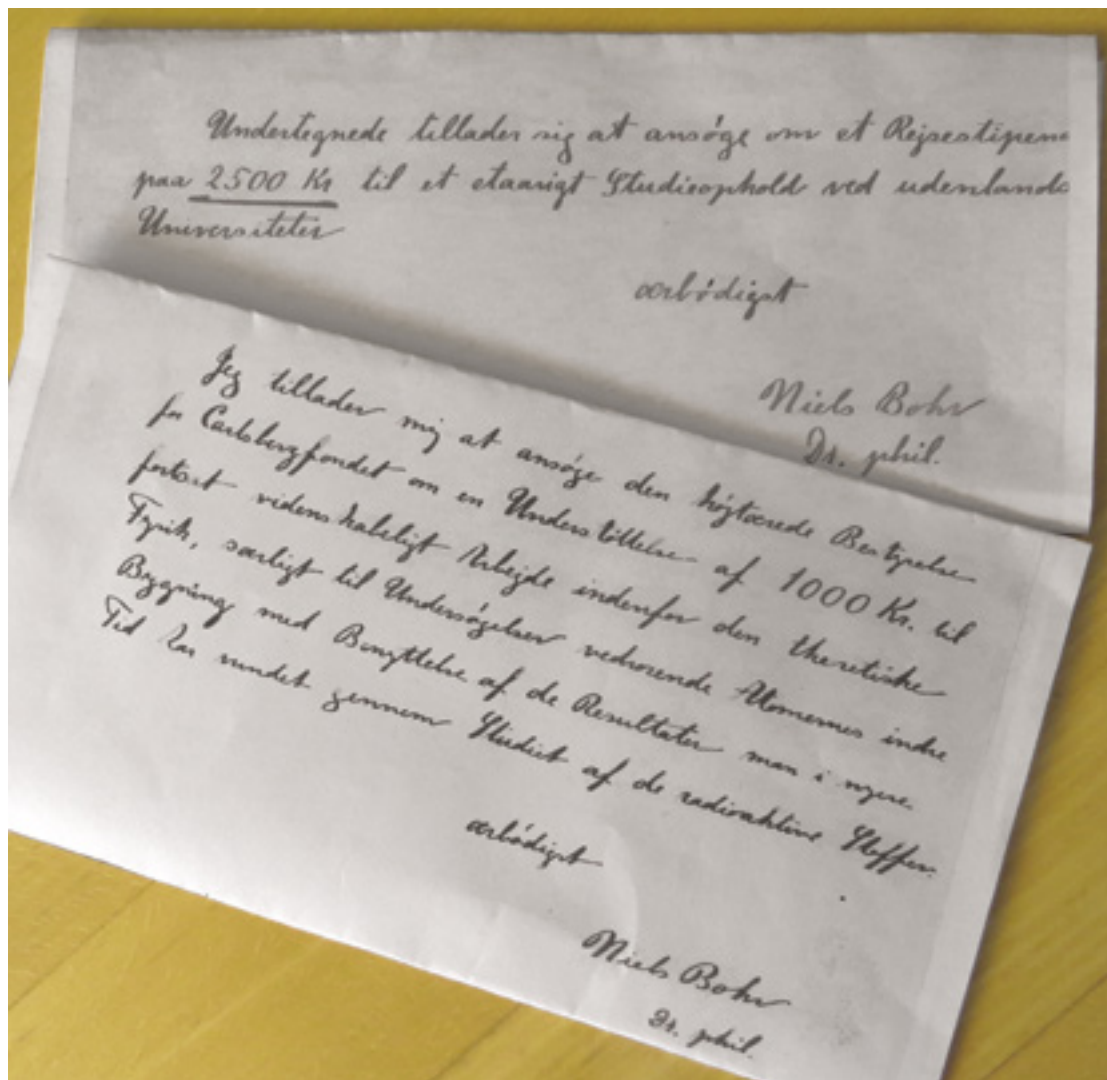 Undertegnede tillader sig at ansøge om et Rejsestipend
paa 2500 Kr til et etaarigt Studieophold ved udenlandske
Universiteter
ærbødigst
Niels Bohr
Dr. phil.
Jeg tillader mig at ansøge den højtærede Bestyrelse
for Carlsbergfondet om en Understøttelse af 1000 Kr. til
fortsat videnskabeligt Arbejde indenfor den theoretiske
Fysik, særligt til Undersøgelser vedrørende Atomernes indre
Bygning med Benyttelse af de Resultater man i nyere
Tid har vundet gennem Studiet af de radioaktive Stoffer.
ærbødigst
Niels Bohr
Dr. phil.